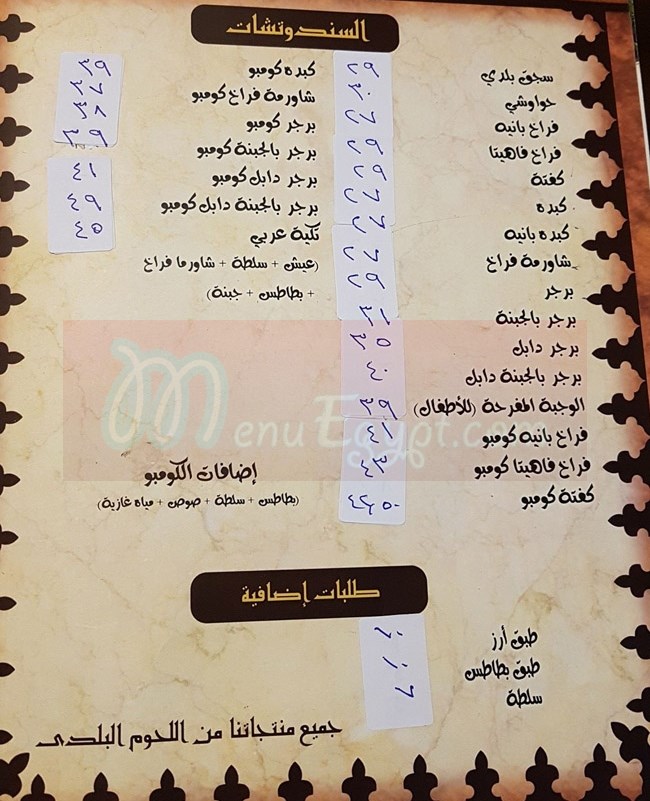 السندوتشات
سجق بلدي ٢٩
حواوشي ٣٠
فراخ بانيه ٢٧
فراخ فاهيتا ٢٩
كفتة ٢٩
كبده ٢٧
كبده بانيه ٢٧
شاورمة فراخ ٢٧
برجر ٢٩
برجر بالجبنة
برجر دابل ٣٥
برجر بالجبنة دابل ٤٠
الوجبة المفرحة (للأطفال) ٣٩
فراخ بانيه كومبو ٤١
فراخ فاهيتا كومبو ٤٣
كفتة كومبو
كبده كومبو ٣٩
شاورمة فراخ كومبو ٣٧
برجر كومبو ٣٨
برجر بالجبنة كومبو ٣٩
برجر دابل كومبو ٤١
برجر بالجبنة دابل كومبو ٤٩
تكية عربي ٤٥
(عيش + سلطة + شاورما فراخ
+ بطاطس + جبنة)
إضافات الكومبو
(بطاطس + سلطة + صوص + مياه غازية)
MenuEgypt.com
طلبات إضافية
طبق أرز
طبق بطاطس
سلطة ٦
جميع منتجاتنا من اللحوم البلدى